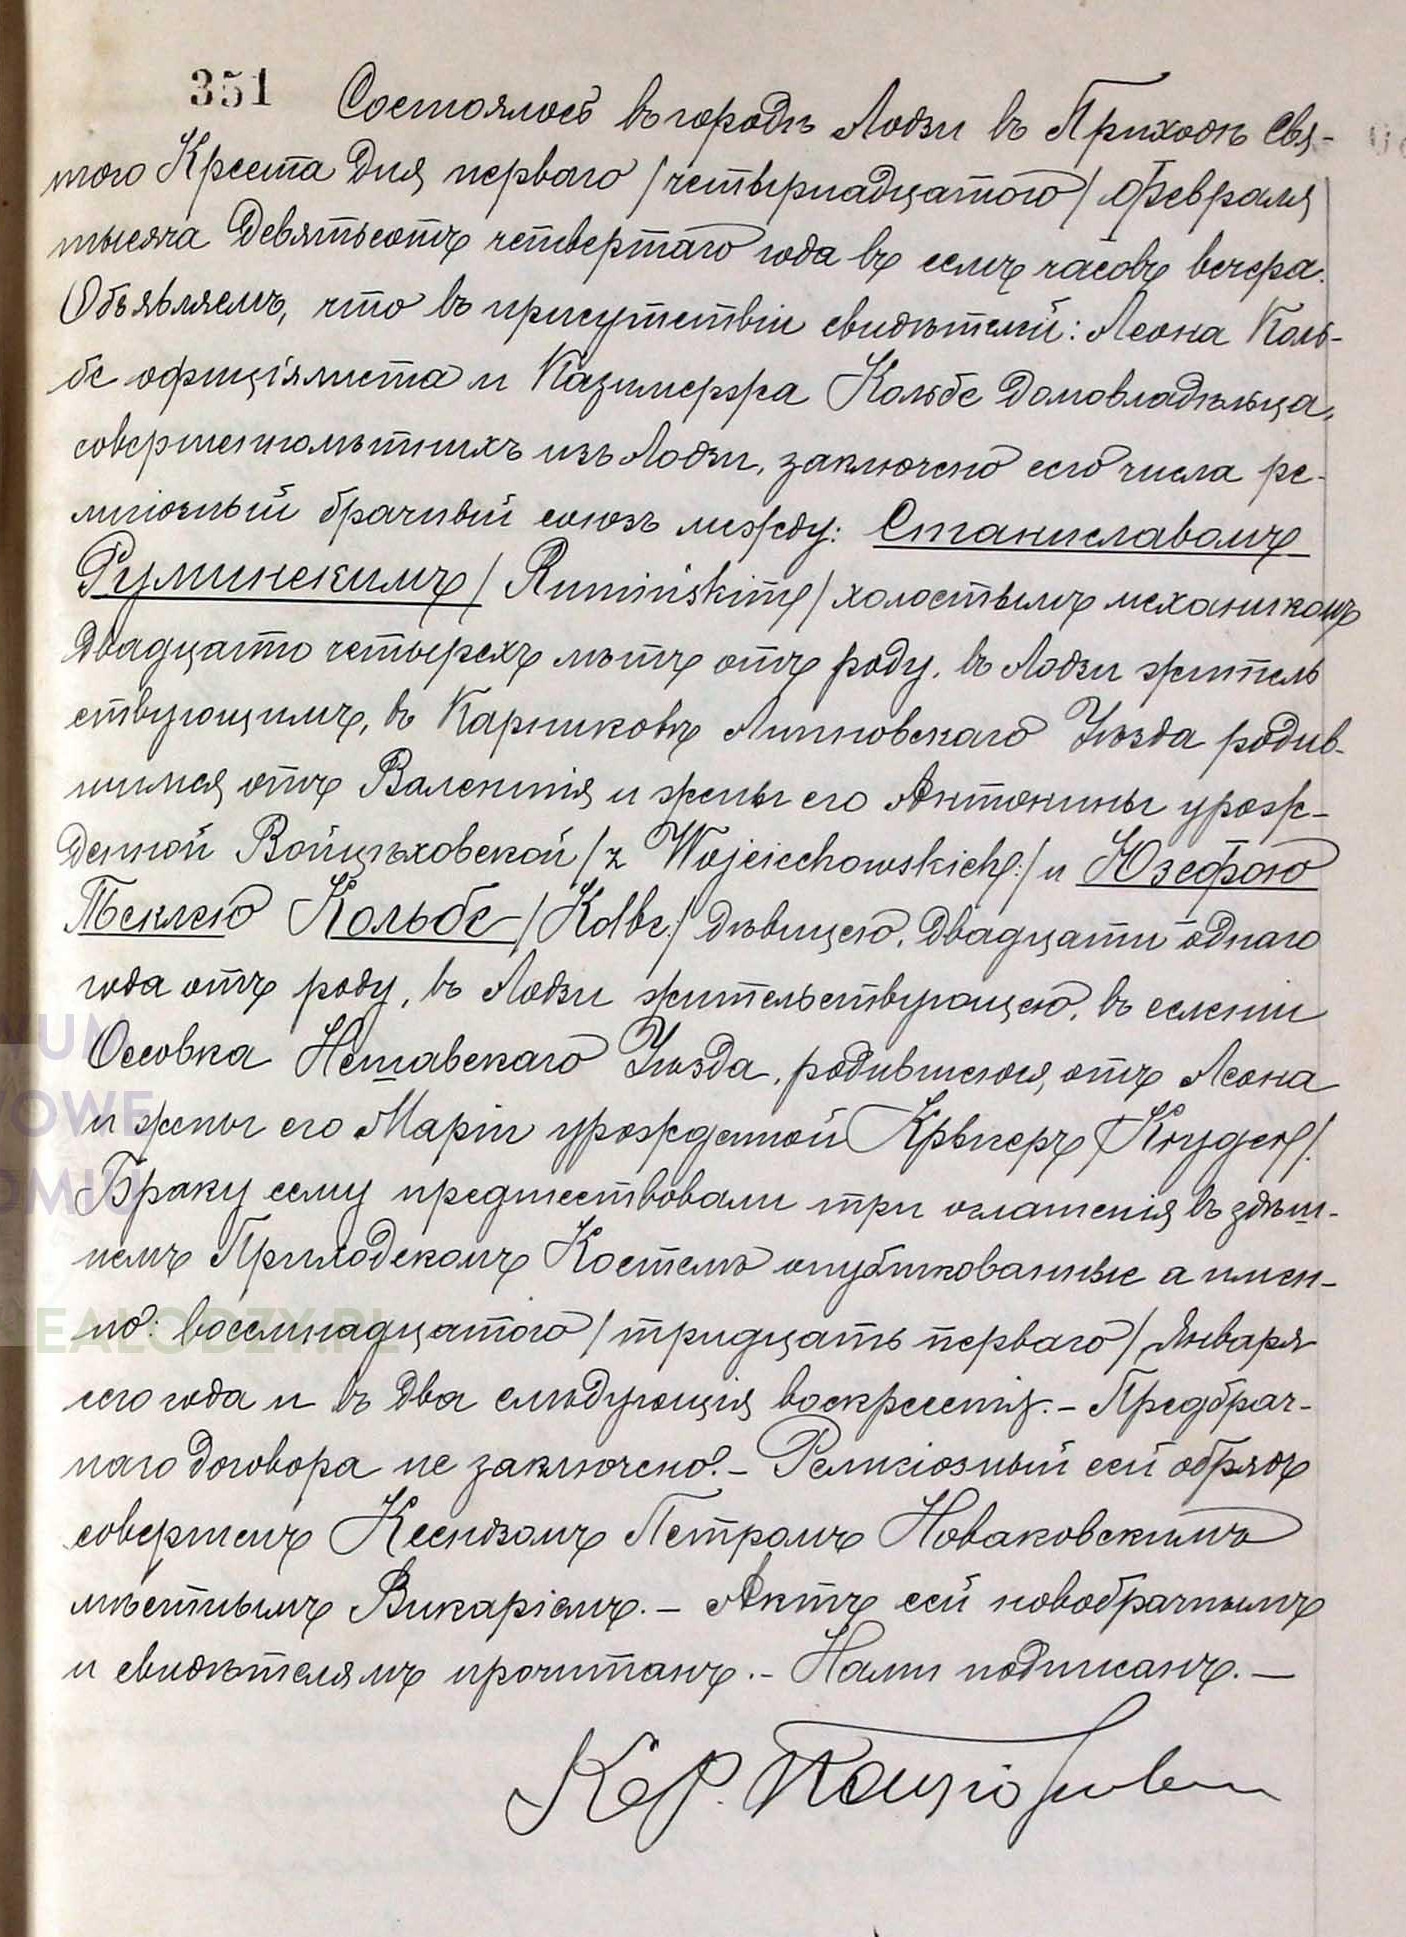 351 Состоялось въ городѣ Лодзи въ Приходѣ Свя-
того Креста Дня перваго /четырнадцатого/ Февраля
тысяча Девятьсотъ четвертаго года въ семъ часовъ вечера.
Объявляемъ, что въ присутствіи свидѣтелей: Леона Коль-
бе офиціялиста и Казимержа Кольбе Домовладѣльца,
совершеннолѣтнихъ изъ Лодзи, заключено сего числа ре-
лигіозный брачный союзъ между: Станиславомъ
Руминскимъ / Rumińskim / холостымъ механикомъ
Двадцати четырехъ лѣтъ отъ роду, въ Лодзи житель
ствующимъ, въ Карниковѣ Липновскаго Уѣзда родив-
шимся отъ Валентія и жены его Антонины урож-
денной Войцѣховской /z Wojciechowskich:/ и Юзефою
Теклею Кольбе /Kolbe:/ дѣвицею, Двадцати одного
года отъ роду, въ Лодзи жительствующею, въ селеніи
Оссовка Нешавскаго Уѣзда, родившеюся, отъ Леона
и жены его Маріи урожденной Крыгеръ /Kryger/.
Браку сему предшествовали три оглашенія въ здѣш-
немъ Приходскомъ Костелѣ опубликованные а имен-
но: восемнадцатого /тридцать перваго/ Января
сего года и въ два слѣдующія воскресенія. – Предбрач-
наго договора не заключено. – Религіозный сей обрядъ
совершенъ Ксендзомъ Петромъ Новаковскимъ
мѣстнымъ Викаріемъ. – Актъ сей новобрачнымъ
и свидѣтелямъ прочитанъ. – Нами подписанъ. –
WUM
WOWE
OMIU
EALODZY.PL